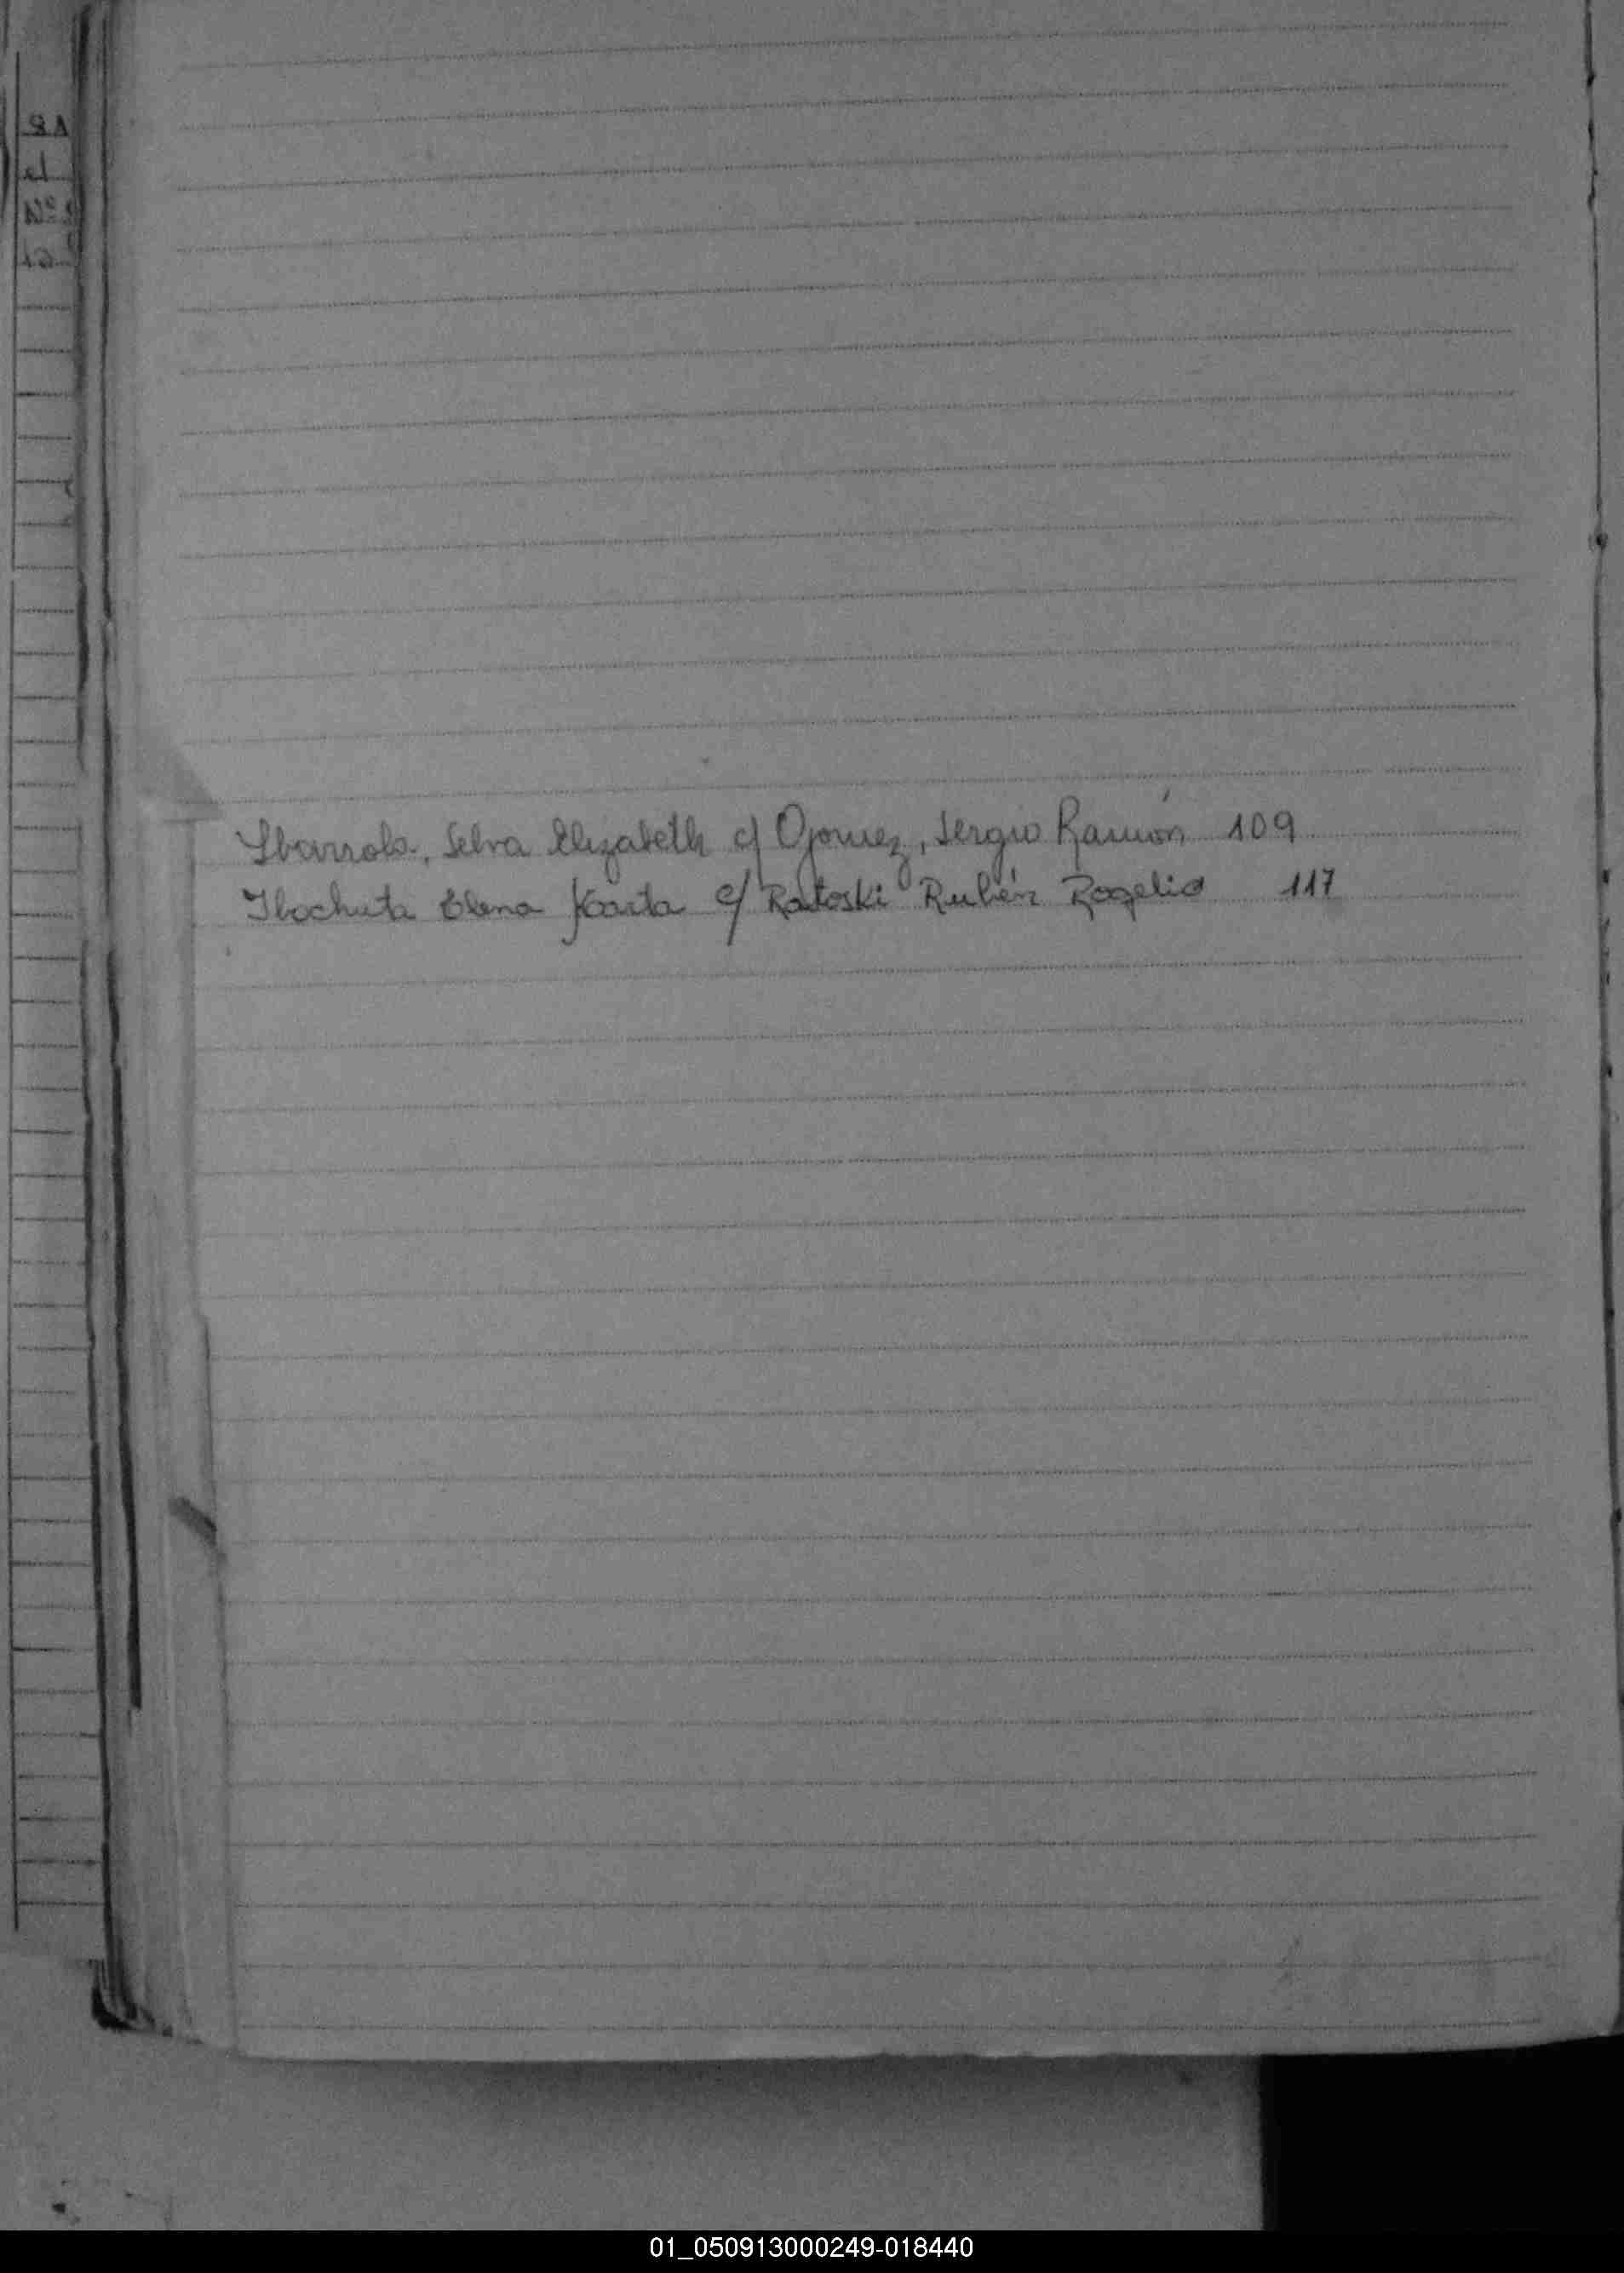 Ibarrola, Selva Elizabeth c/ Gomez, Sergio Ramón 109
Ilochuta Elena c/ Ratoski Rubén Rogelio 117
01_050913000249-018440